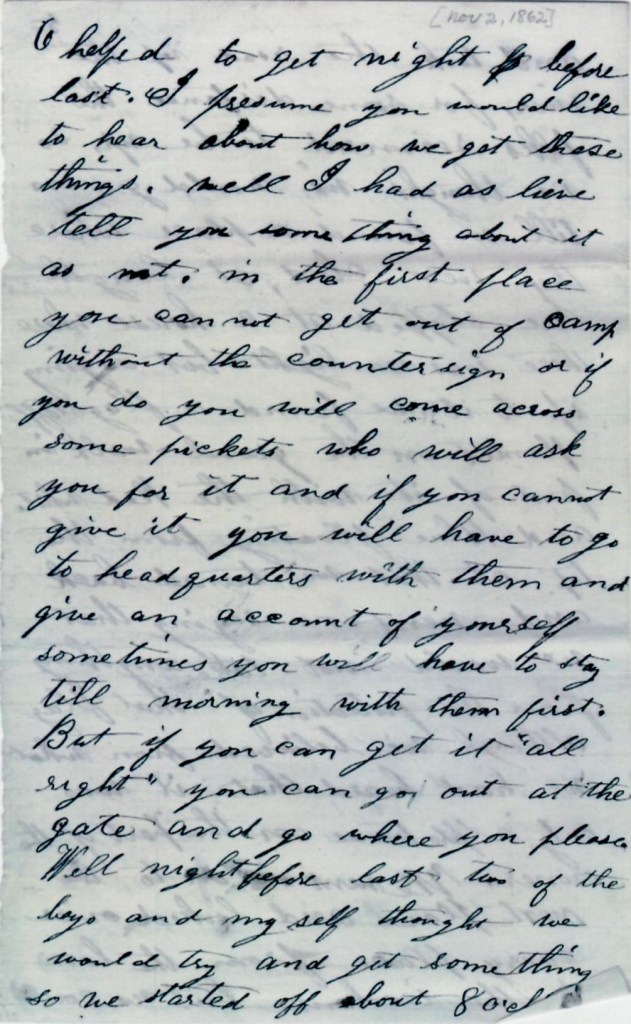 [Nov 2, 1862]
6 helped to get night before
last. I presume you would like
to hear about how we get these
things. well I had as lieve
tell you some thing about it
as not. in the first place
you can not get out of camp
without the countersign or if
you do you will come across
some pickets who will ask
you for it and if you cannot
give it you will have to go
to headquarters with them and
give an account of yourself
sometimes you will have to stay
till morning with them first.
But if you can get it "all
right" you can go out at the
gate and go where you please
Well night before last two of the
boys and my self thought we
would try and get something
so we started off about 8 ocl